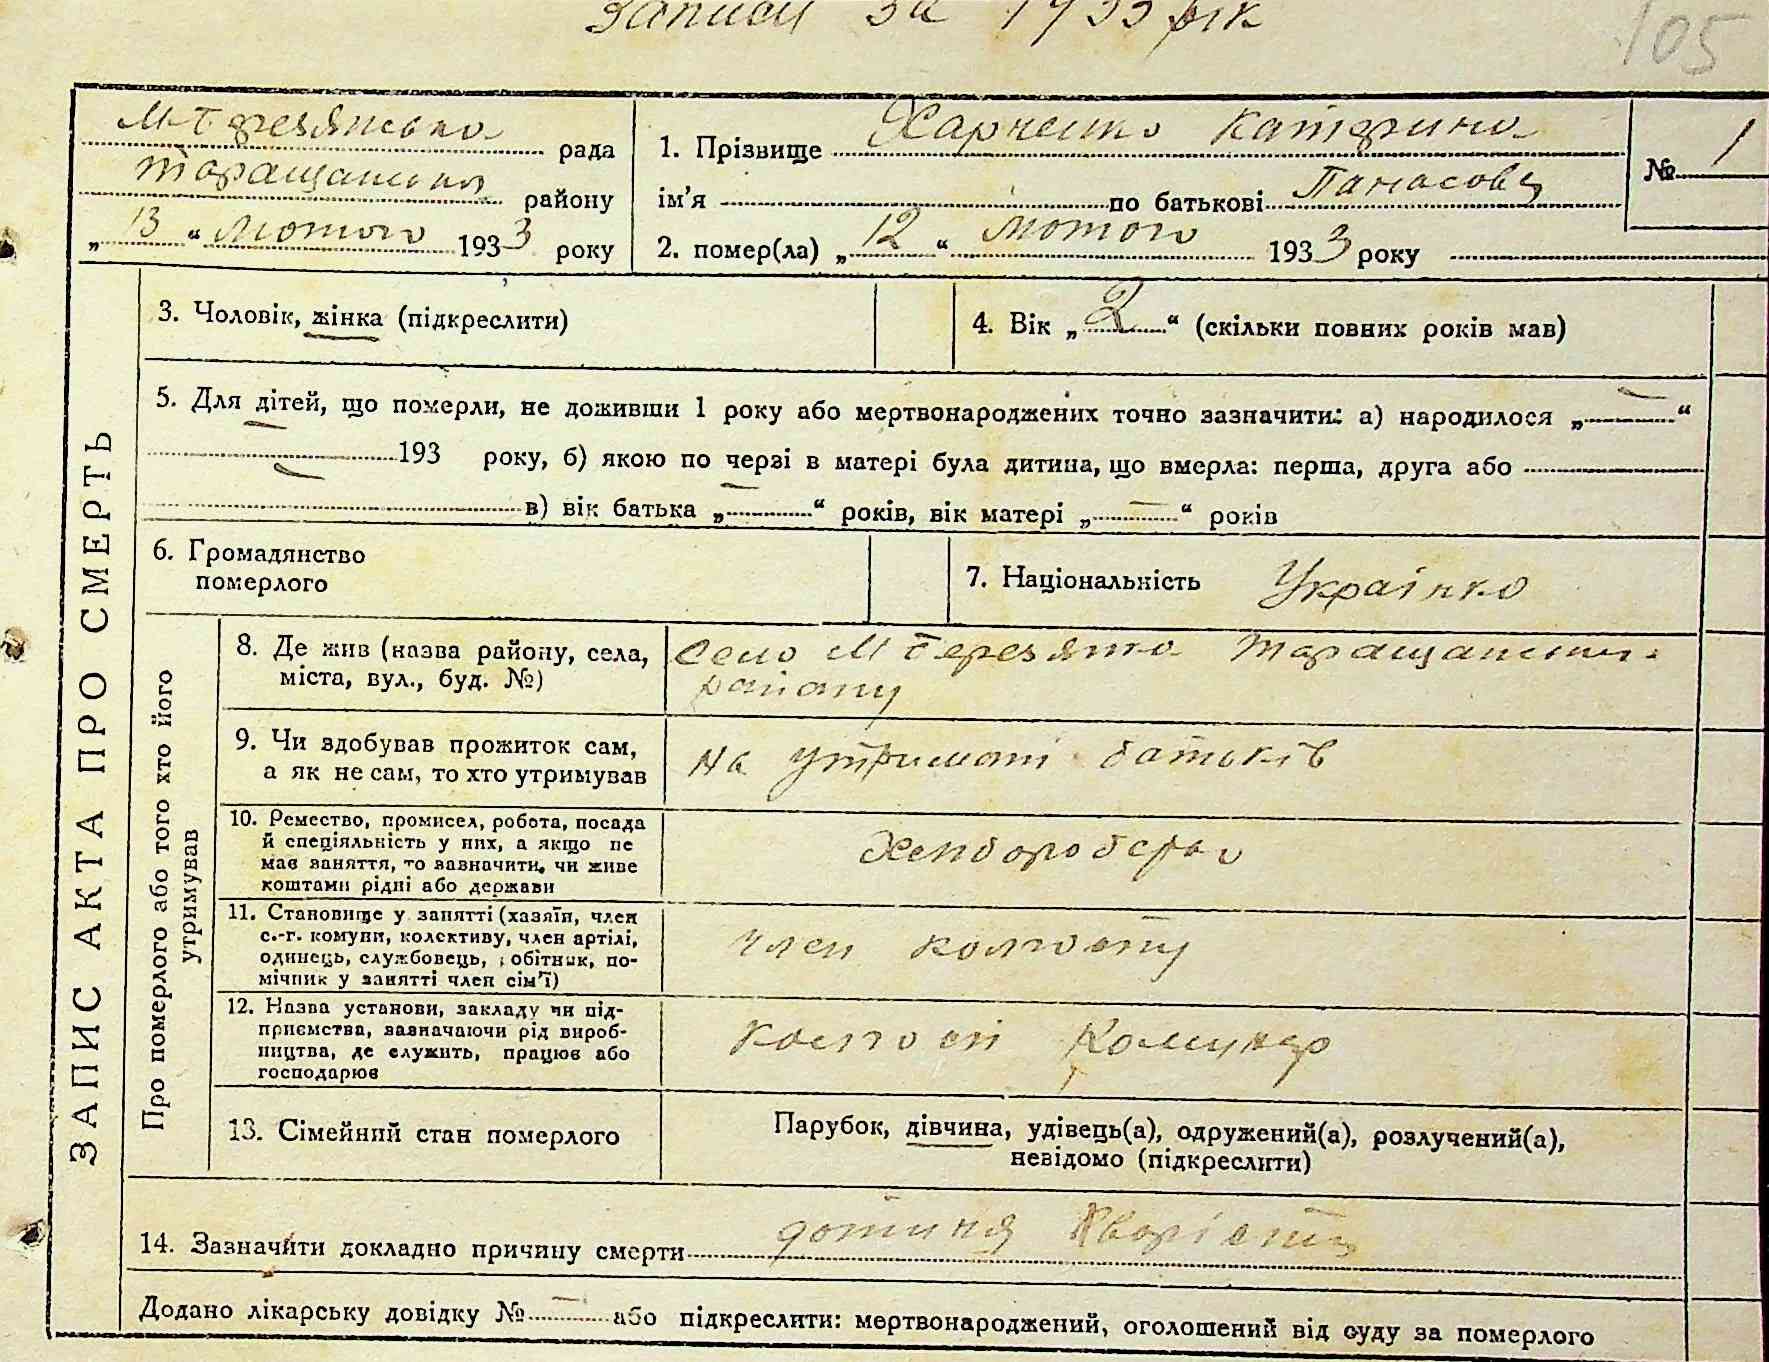 Записи за 1933 рік
105
М-Березянська рада
Таращанськ району
„13“ лютого 1933 року
1. Прізвище Харченко Катерина
ім'я по батькові Панасовн
2. помер(ла) „12“ лютого 1933 року
№ 1
ЗАПИС АКТА ПРО СМЕРТЬ
3. Чоловік, жінка (підкреслити)
4. Вік „2“ (скільки повних років мав)
5. Для дітей, що померли, не доживши 1 року або мертвонароджених точно зазначити: а) народилося „—“
193 року, б) якою по черзі в матері була дитина, що вмерла: перша, друга або
в) вік батька „—“ років, вік матері „—“ років
6. Громадянство
померлого
7. Національність Українка
Про померлого або того хто його
утримував
8. Де жив (назва району, села,
міста, вул., буд. №)
Село М Березянка Таращанськ.
району
9. Чи здобував прожиток сам,
а як не сам, то хто утримував
на утримані батьків
10. Ремество, промисел, робота, посада
й спеціяльність у них, а якщо не
має заняття, то зазначити, чи живе
коштами рідні або держави
Хлібороберав
11. Становище у занятті (хазяїн, член
с.-г. комуни, колективу, член артілі,
одинець, службовець, робітник, по-
мічник у занятті член сім'ї)
член колгоспу
12. Назва установи, закладу чи під-
приємства, зазначаючи рід вироб-
ництва, де служить, працює або
господарює
колгосп Комунар
13. Сімейний стан померлого
Парубок, дівчина, удівець(а), одружений(а), розлучений(а),
невідомо (підкреслити)
14. Зазначити докладно причину смерти дотиня хворість
Додано лікарську довідку № — або підкреслити: мертвонароджений, оголошений від суду за померлого